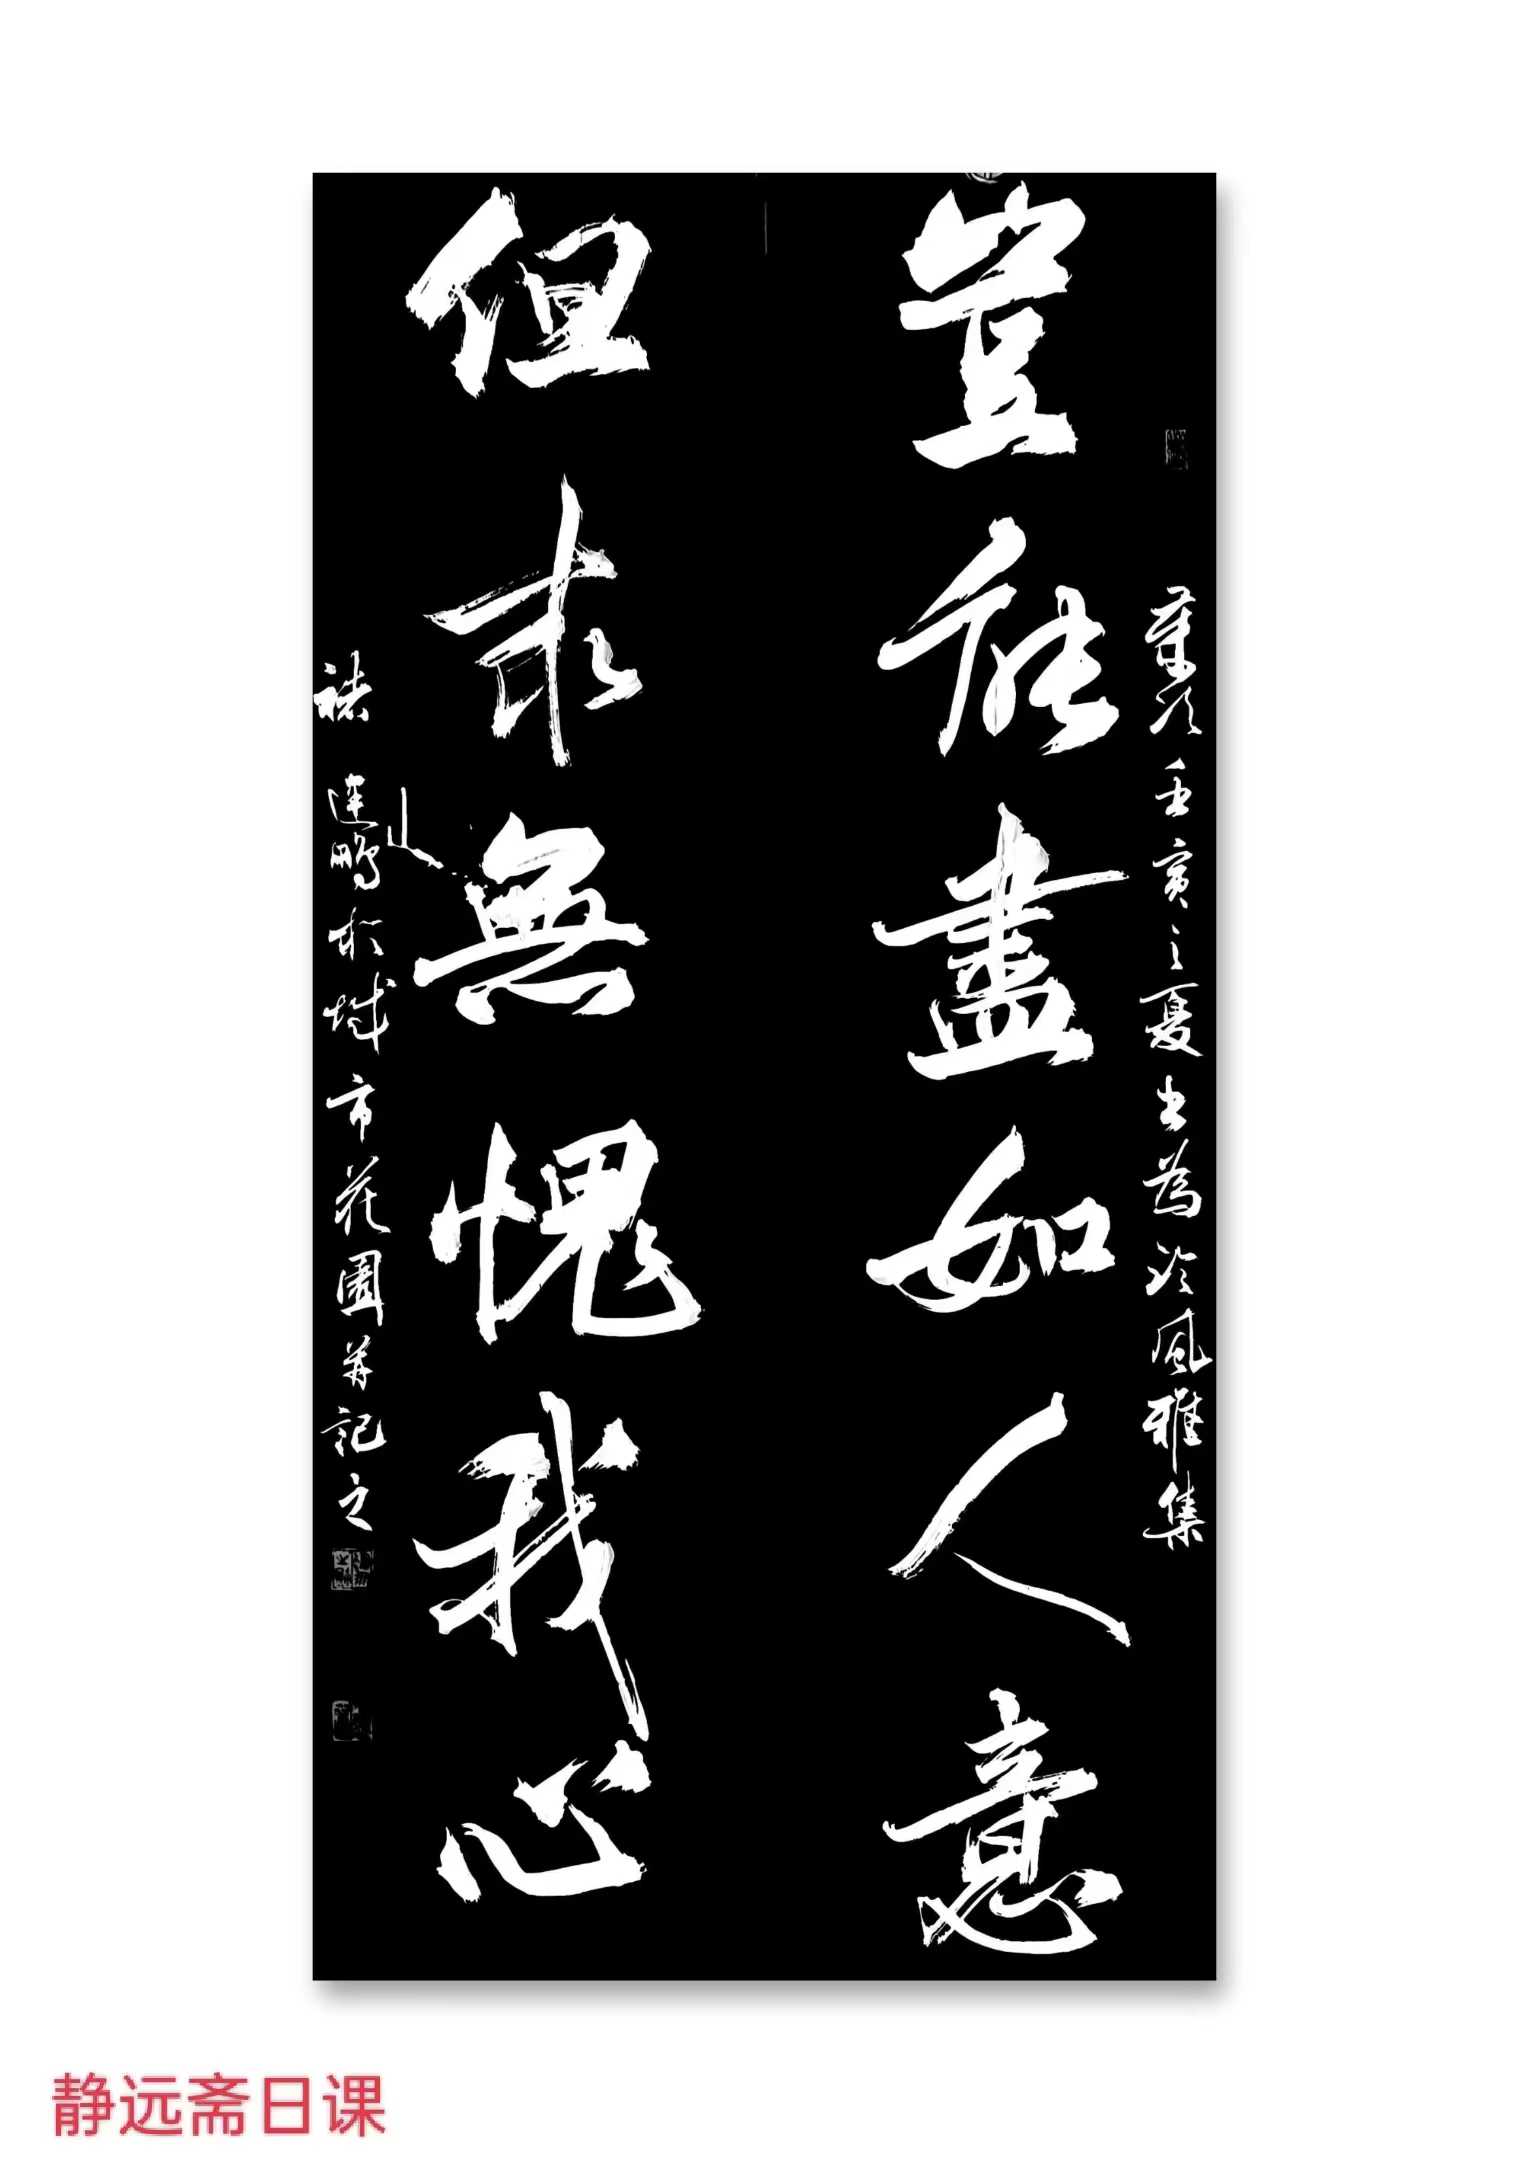 豈能盡如人意
但求無愧我心
歲次壬寅之夏書為冷風雅集
連鵬於城市花園并記之
静远斋日课